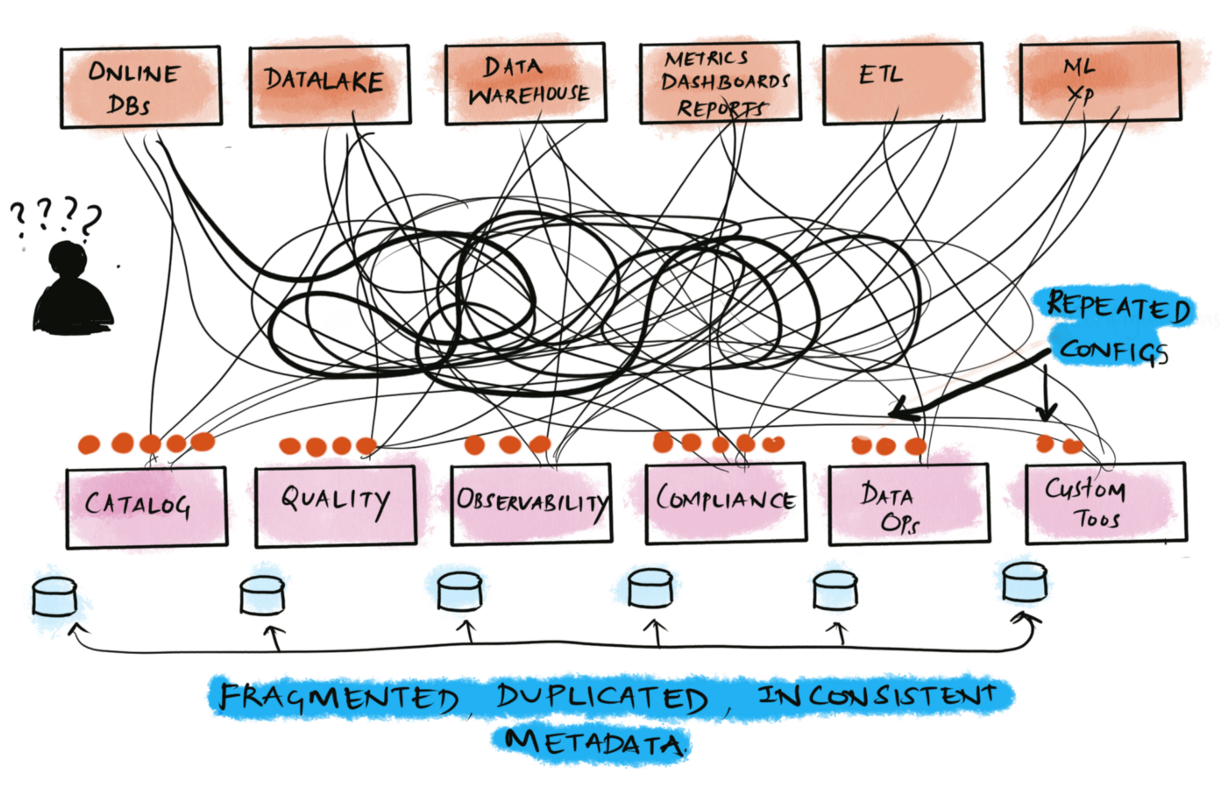 ONLINE
DBs
DATALAKE
DATA
WAREHOUSE
METRICS
DASHBOARDS
REPORTS
ETL
ML
XP
? ? ? ?
REPEATED
CONFIGS
CATALOG
QUALITY
OBSERVABILITY
COMPLIANCE
DATA
OPs
CUSTOM
TOOS
FRAGMENTED, DUPLICATED, INCONSISTENT
METADATA.